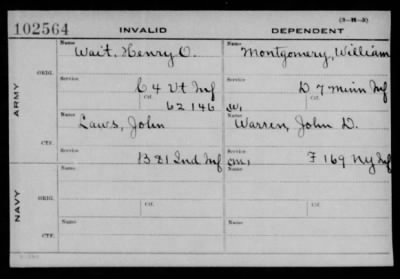 (3-H-3)
102564 INVALID DEPENDENT
Name Name
Wait, Henry O. Montgomery, William
ORIG.
Service Service
C 4 Vt Inf D 7 Minn Inf
Ctf. Ctf.
62146 W,
ARMY
Name Name
Laws, John Warren, John D.
CTF.
Service Service
B 81 Ind Inf cm, F 169 Ny Inf
Name Name
ORIG.
Service Service
NAVY
Ctf. Ctf.
Name Name
CTF.